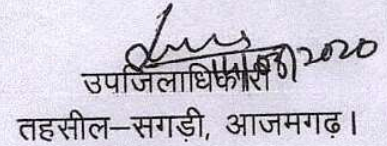 2020
उपजिलाधिकारी
तहसील–सगड़ी, आजमगढ़।